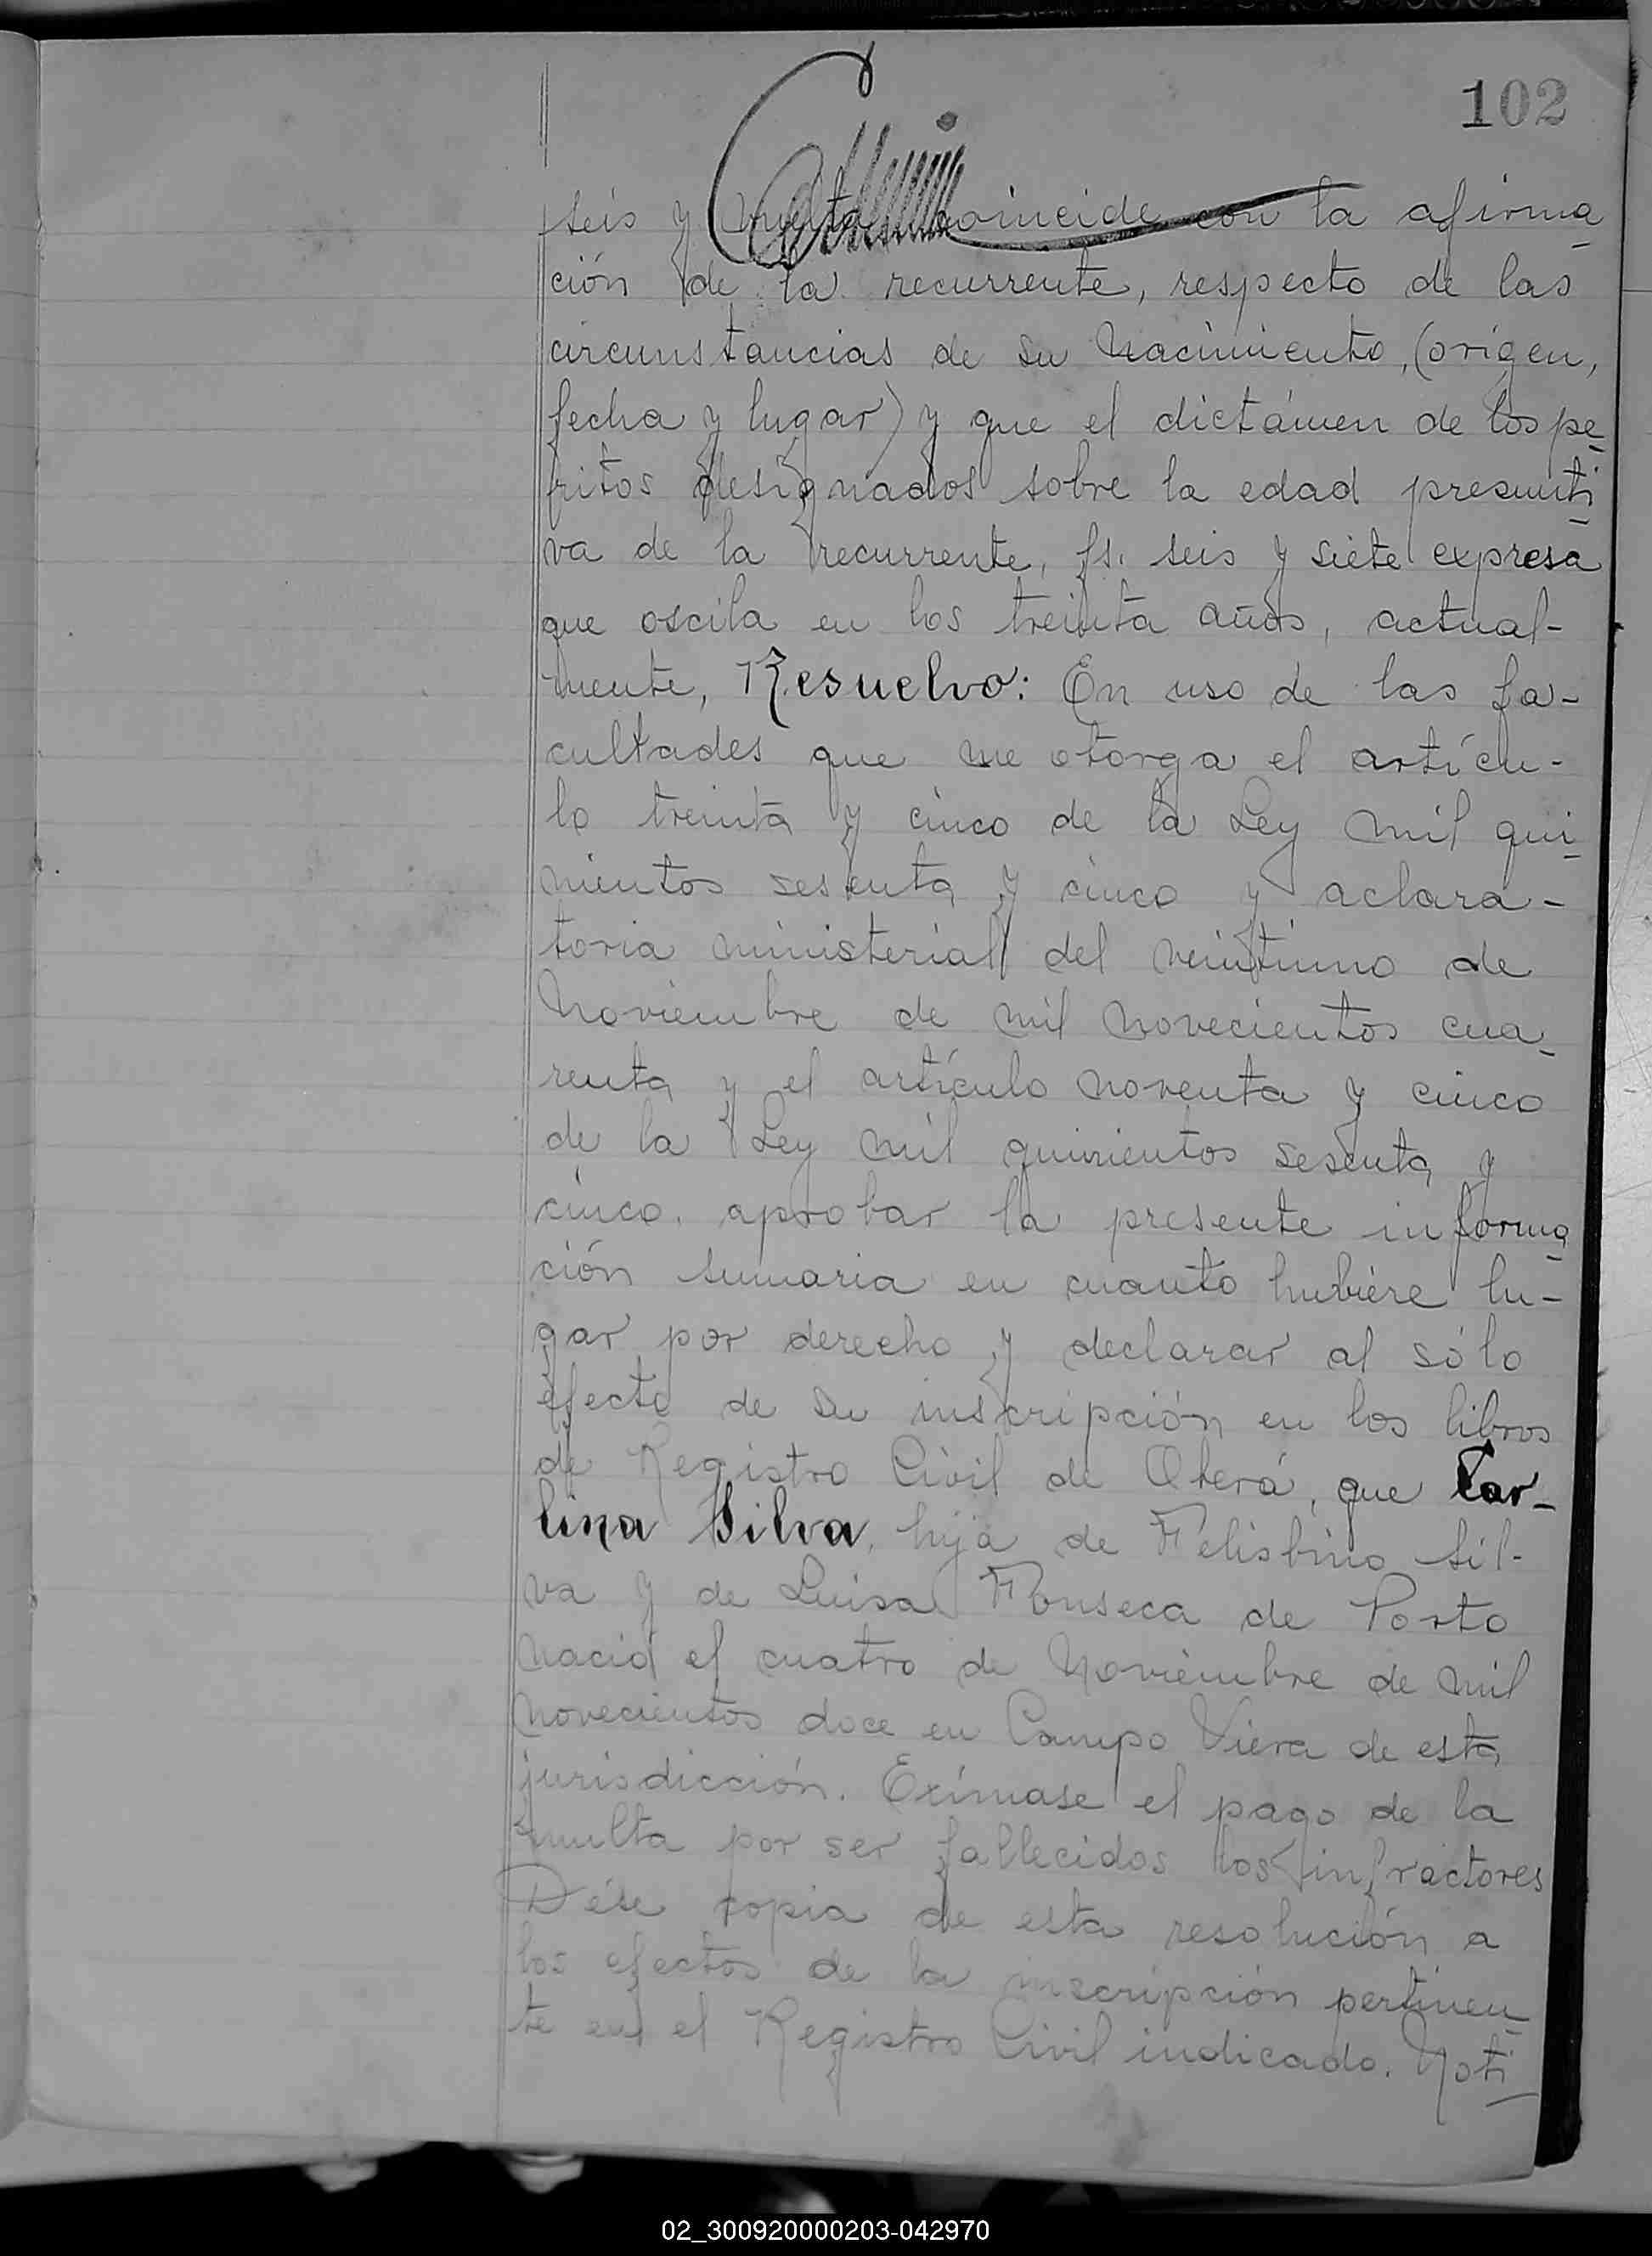 102
seis y vuelta coincide con la afirma-
ción de la recurrente, respecto de las
circunstancias de su nacimiento, (orígen,
fecha y lugar) y que el dictámen de los pe-
ritos designados sobre la edad presunti-
va de la recurrente, fs. seis y siete expresa
que oscila en los treinta años, actual-
mente, Resuelvo: En uso de las fa-
cultades que me otorga el artícu-
lo treinta y cinco de la Ley mil qui-
nientos sesenta y cinco y aclara-
toria ministerial del veintiuno de
Noviembre de mil novecientos cua-
renta y el artículo noventa y cinco
de la Ley mil quinientos sesenta y
cinco, aprobar la presente informa-
ción sumaria en cuanto hubiere lu-
gar por derecho y declarar al sólo
efecto de su inscripción en los libros
de Registro Civil de Oberá, que Car-
lina Silva, hija de Felisbino Sil-
va y de Luisa Fonseca de Porto
nació el cuatro de Noviembre de mil
novecientos doce en Campo Viera de esta
jurisdicción. Exímase el pago de la
multa por ser fallecidos los infractores
Dése copia de esta resolución a
los efectos de la inscripción pertinen-
te en el Registro Civil indicado. Noti-
02_300920000203-042970